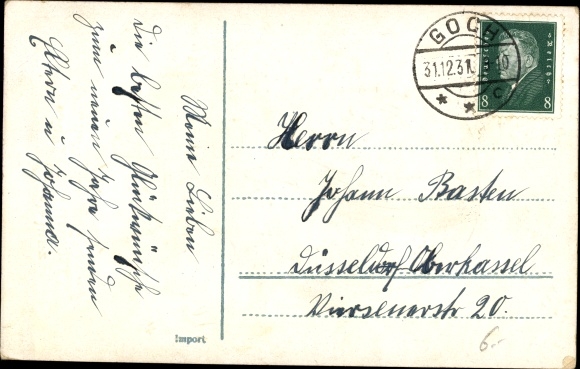 Meine Lieben
Die besten Glückwünsche
zum neuen Jahr senden
Eltern u Johanna.
GOCH
31.12.31.
* * c
Deutsches Reich
8 8
Herrn
Johann Basten
Düsseldorf Oberkassel
Viersenerstr 20.
Import
6.-